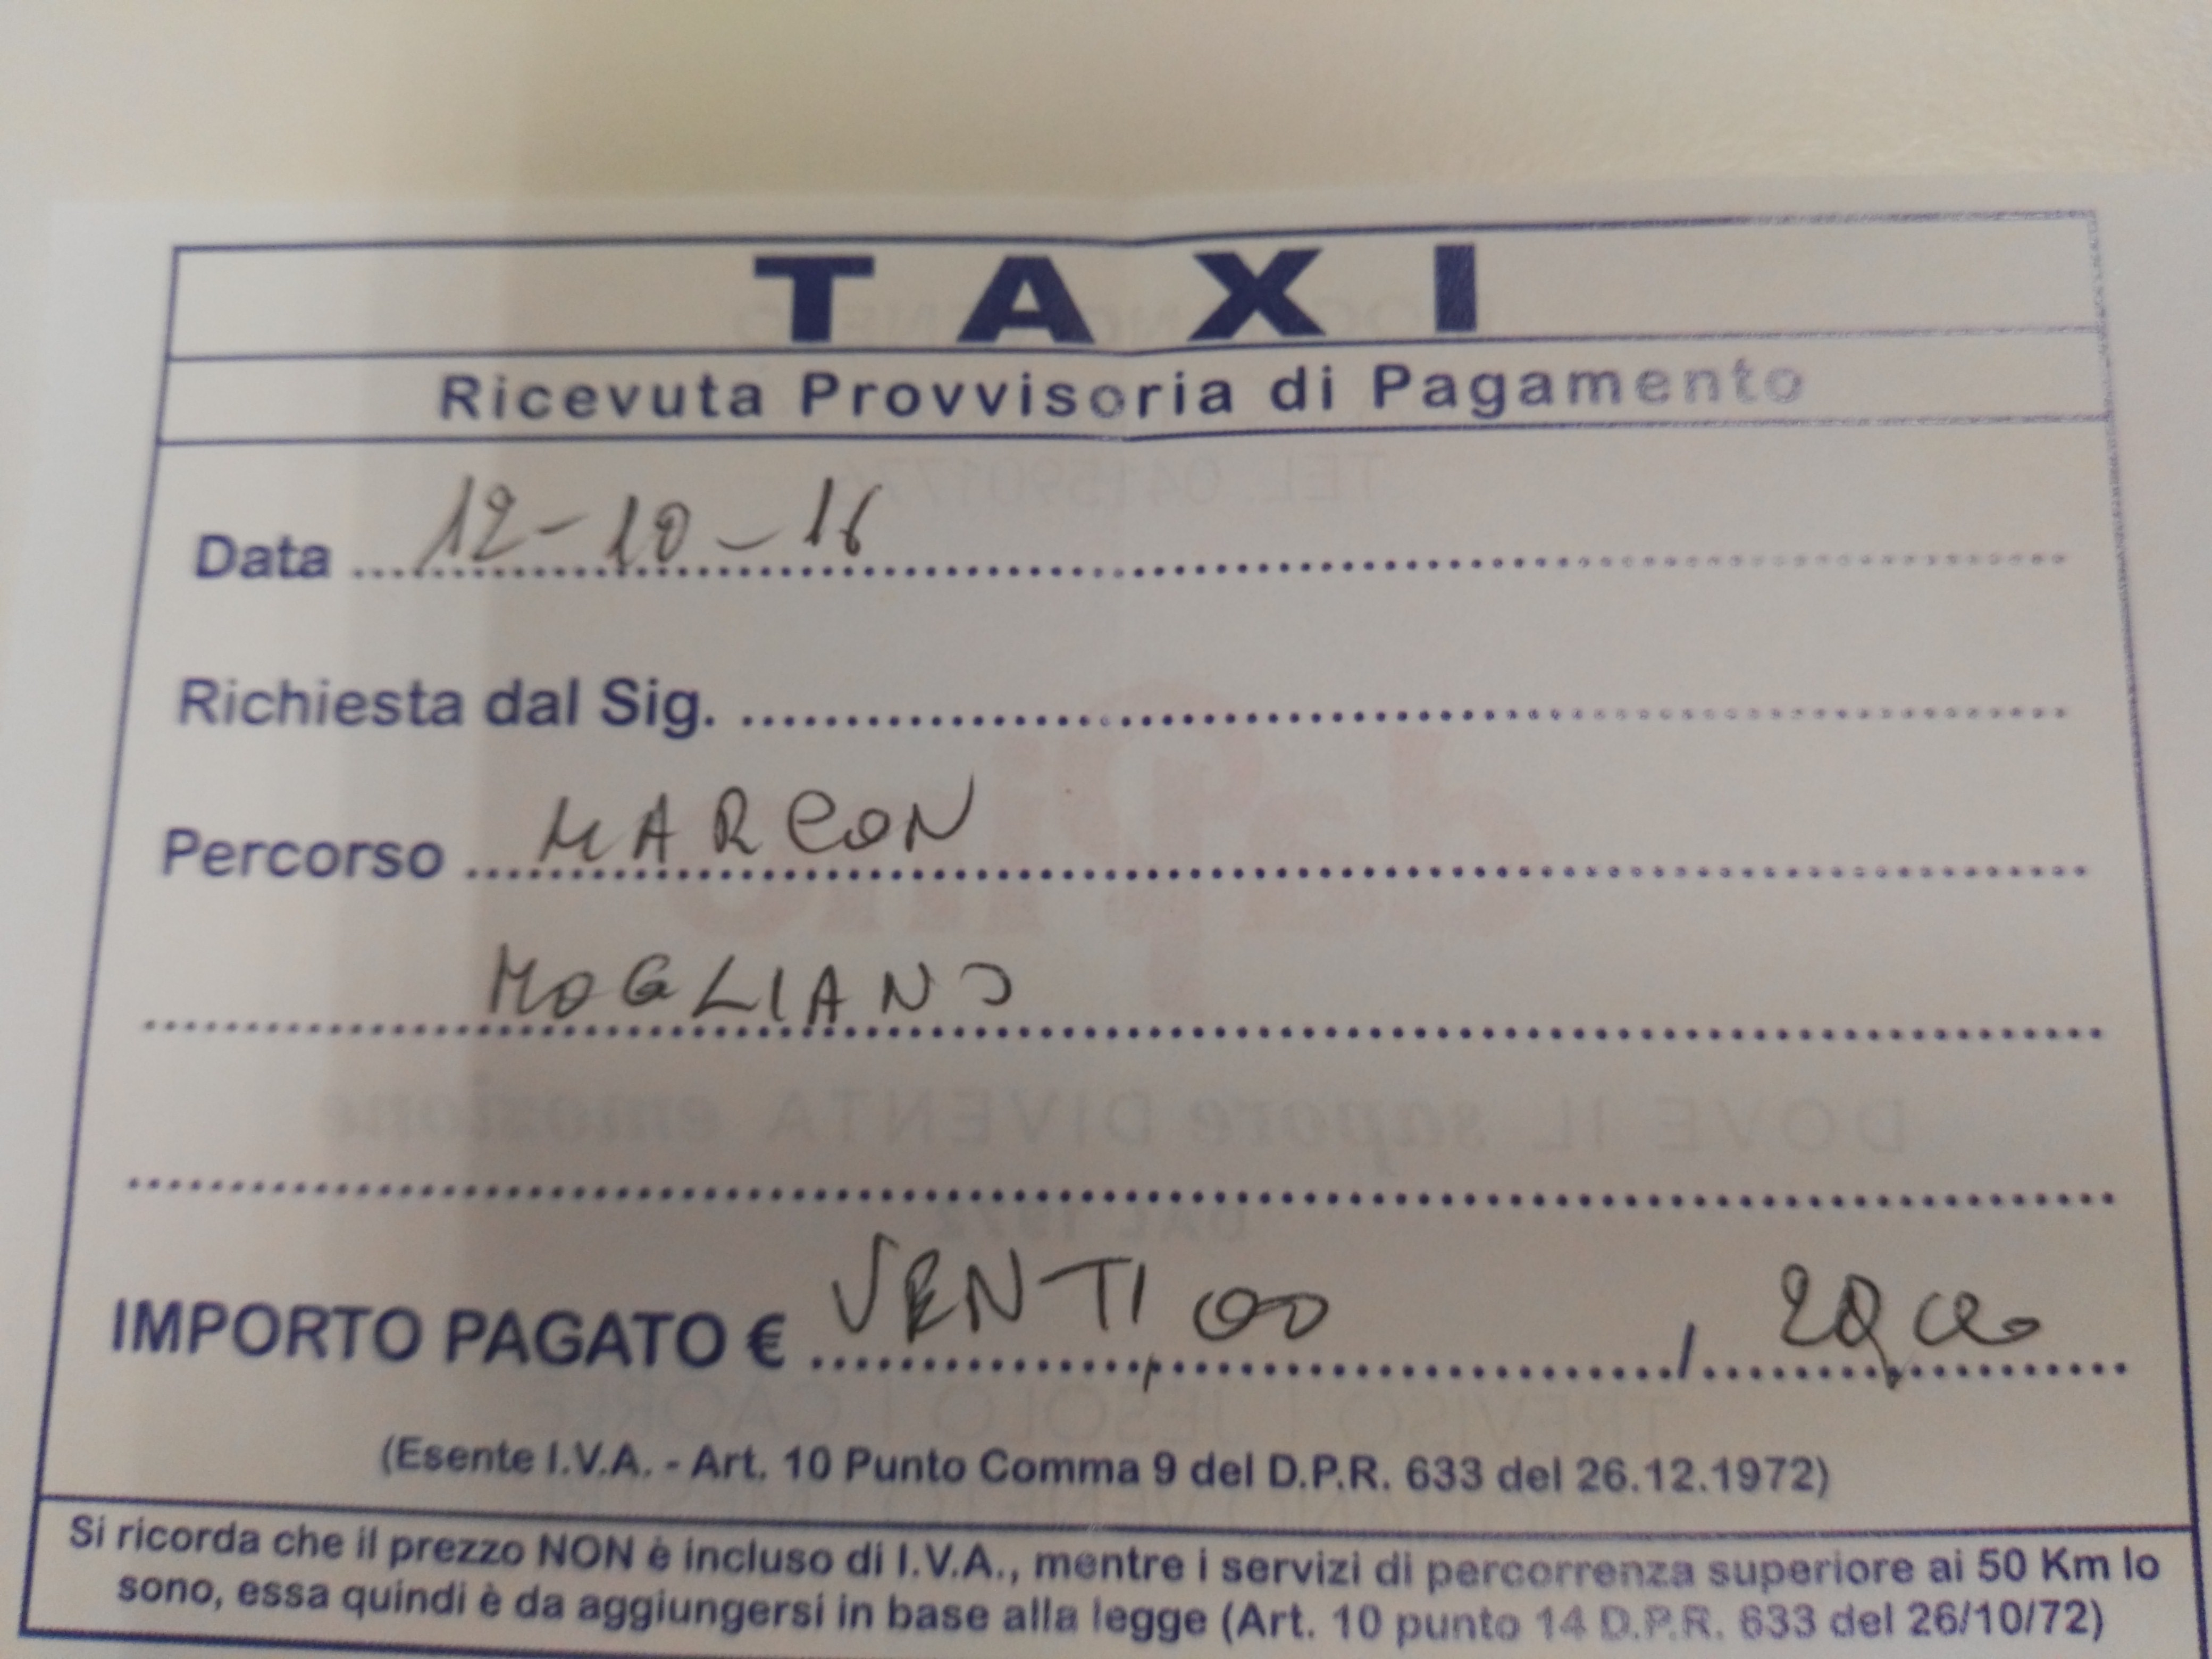 TAXI
Ricevuta Provvisoria di Pagamento
Data 12-10-16
Richiesta dal Sig.
Percorso MARCON
MOGLIANO
IMPORTO PAGATO € VENTI,00 / 20,00
(Esente I.V.A. - Art. 10 Punto Comma 9 del D.P.R. 633 del 26.12.1972)
Si ricorda che il prezzo NON è incluso di I.V.A., mentre i servizi di percorrenza superiore ai 50 Km lo
sono, essa quindi è da aggiungersi in base alla legge (Art. 10 punto 14 D.P.R. 633 del 26/10/72)